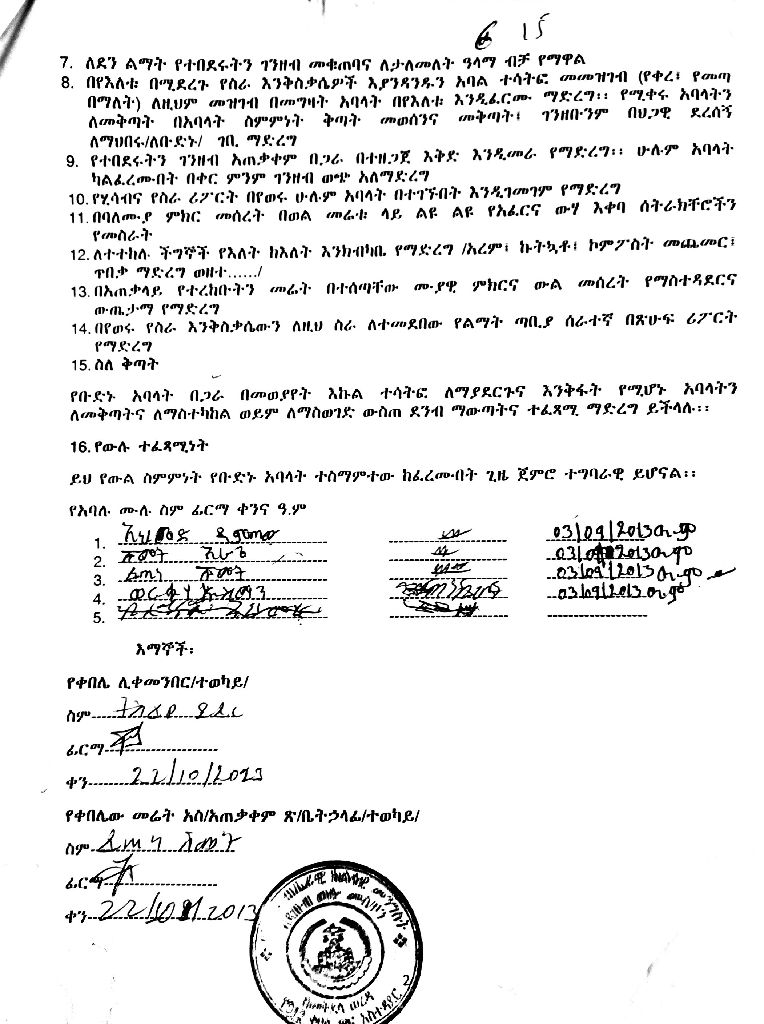 6 15
7. ለደን ልማት የተበደሩትን ገንዘብ መቁጠባና ለታለመለት ዓላማ ብቻ የማዋል
8. በየእለቱ በሚደረጉ የስራ እንቅስቃሴዎች እያንዳንዱን አባል ተሳትፎ መመዝገብ (የቀረ፣ የመጣ
በማለት) ለዚህም መዝገብ በመግዛት አባላት በየእለቱ እንዲፈርሙ ማድረግ፡፡ የሚቀሩ አባላትን
ለመቅጣት በአባላት ስምምነት ቅጣት መወሰንና መቅጣት፣ ገንዘቡንም በህጋዊ ደረሰኝ
ለማህበሩ/ለቡድኑ/ ገቢ ማድረግ
9. የተበደሩትን ገንዘብ አጠቃቀም በጋራ በተዘጋጀ እቅድ እንዲመራ የማድረግ፡፡ ሁሉም አባላት
ካልፈረሙበት በቀር ምንም ገንዘብ ወጭ አለማድረግ
10. የሂሳብና የስራ ሪፖርት በየወሩ ሁሉም አባላት በተገኙበት እንዲገመገም የማድረግ
11. በባለሙያ ምክር መሰረት በወል መሬቱ ላይ ልዩ ልዩ የአፈርና ውሃ እቀባ ሰትራክቸሮችን
የመስራት
12. ለተተከሉ ችግኞች የእለት ከእለት እንክብካቤ የማድረግ /አረም፣ ኩትኳቶ፣ ኮምፖስት መጨመር፣
ጥበቃ ማድረግ ወዘተ....../
13. በአጠቃላይ የተረከቡትን መሬት በተሰጣቸው ሙያዊ ምክርና ውል መሰረት የማስተዳደርና
ውጤታማ የማድረግ
14. በየወሩ የስራ እንቅስቃሴውን ለዚህ ስራ ለተመደበው የልማት ጣቢያ ሰራተኛ በጽሁፍ ሪፖርት
የማድረግ
15. ስለ ቅጣት
የቡድኑ አባላት በጋራ በመወያየት እኩል ተሳትፎ ለማያደርጉና እንቅፋት የሚሆኑ አባላትን
ለመቅጣትና ለማስተካከል ወይም ለማስወገድ ውስጠ ደንብ ማውጣትና ተፈጻሚ ማድረግ ይችላሉ፡፡
16. የውሉ ተፈጻሚነት
ይህ የውል ስምምነት የቡድኑ አባላት ተስማምተው ከፈረሙበት ጊዜ ጀምሮ ተግባራዊ ይሆናል፡፡
የአባሉ ሙሉ ስም ፊርማ ቀንና ዓ.ም
1. 03/09/2013
2. 2013
3. 03/09/2013
4. 03/09/2013
5.
እማኞች፡
የቀበሌ ሊቀመንበር/ተወካይ/
ስም
ፊርማ
ቀን 22/10/2013
የቀበሌው መሬት አስ/አጠቃቀም ጽ/ቤትኃላፊ/ተወካይ/
ስም
ፊርማ
ቀን 2013
2